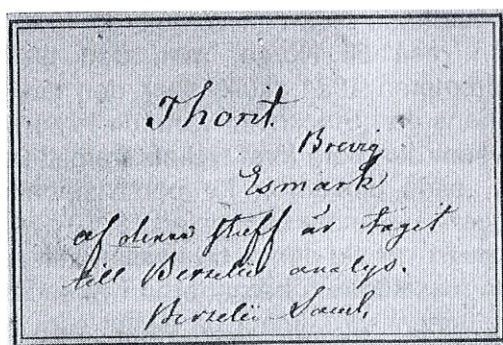 Thorit.
Brevig
Esmark
af denna stuff är taget
till Berzelii analys.
Berzelii Saml.